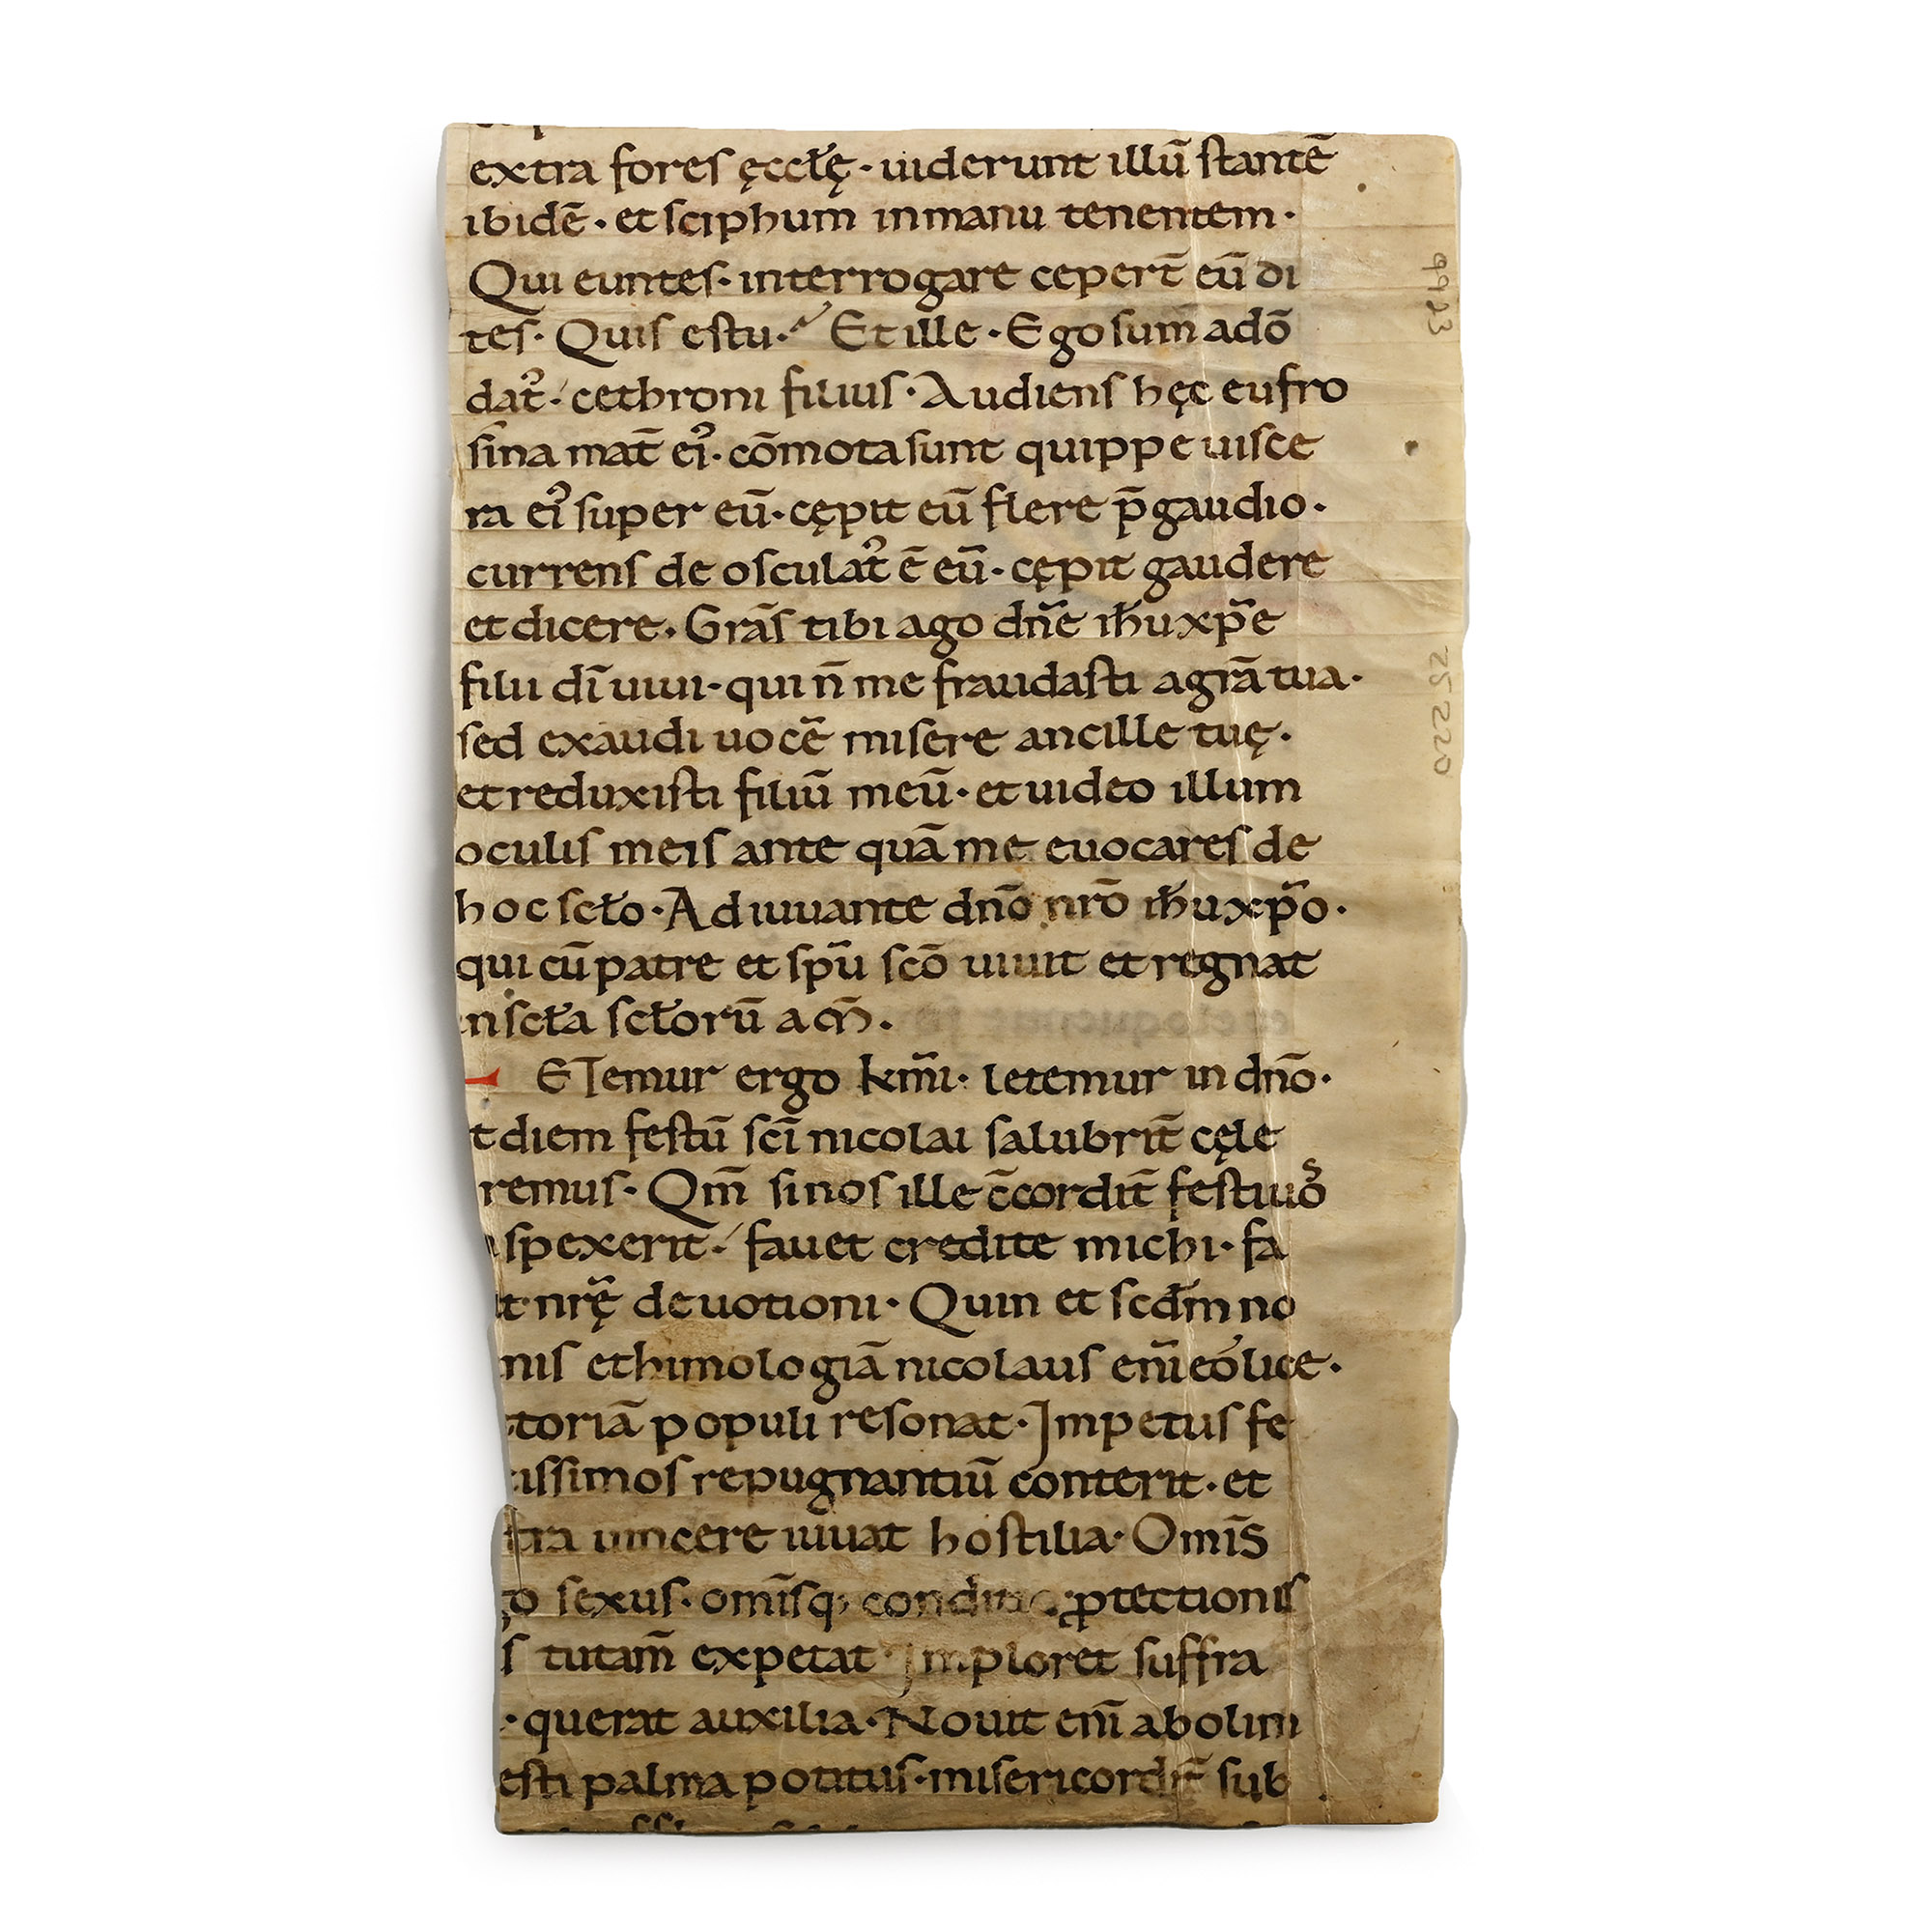 extra fores ęccłę · uiderunt illū stantē
ibidē · et sciphum inmanu tenentem ·
Qui euntes · interrogare ceper̄t eū di
tes · Quis estu · Et ille · Ego sum adō
dat᷒ · cethroni filius · Audiens hęc eufro
sina mat̄ ei᷒ · cōmota sunt quippe uisce
ra ei᷒ super eū · cępit eū flere p̄ gaudio ·
currens de osculat᷒ ē eū · cępit gaudere
et dicere · Grās tibi ago dn̄e ih̄u xp̄e
filii dī uiui · qui n̄ me fraudasti agrā tua ·
sed exaudi uocē misere ancille tuę ·
et reduxisti filiū meū · et uideo illum
oculis meis ante quā me euocares de
hoc scło · Adiuuante dn̄o nr̄o ih̄u xp̄o ·
qui cū patre et sp̄u sc̄o uiuit et regnat
in scła scłorū am̄ ·
ETemur ergo km̄i · letemur in dn̄o ·
t diem festū sc̄i nicolai salubrit̄ cęle
remus · Qm̄ si nos ille c̄cordit̄ festiuos
spexerit · fauet credite michi · fa
t nr̄ę deuotioni · Quin et scdm̄ no
nis ethimologiā nicolaus eni̅ eolice ·
toriā populi resonat · Impetus fe
issimos repugnantiū conterit · et
tra uincere iuuat hostilia · Omīs
go sexus · omīsq; ꝓtectionis
s tutam̄ expetat · Imploret suffra
· querat auxilia · Nouit eni̅ abolim
esti palma potitus · misericordit̄ sub
9923
25220